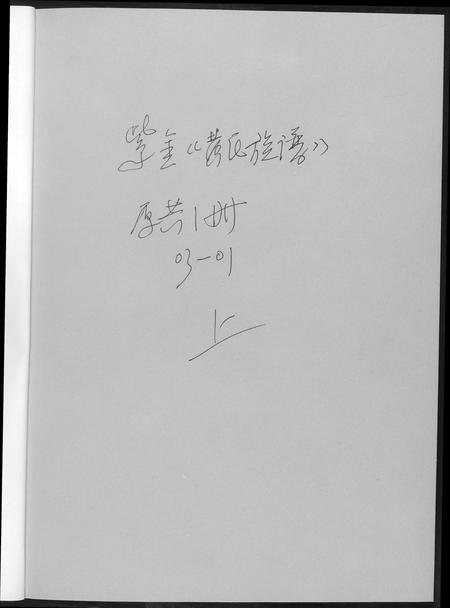 紫金《黄氏族谱》
原共1册
03-01
上